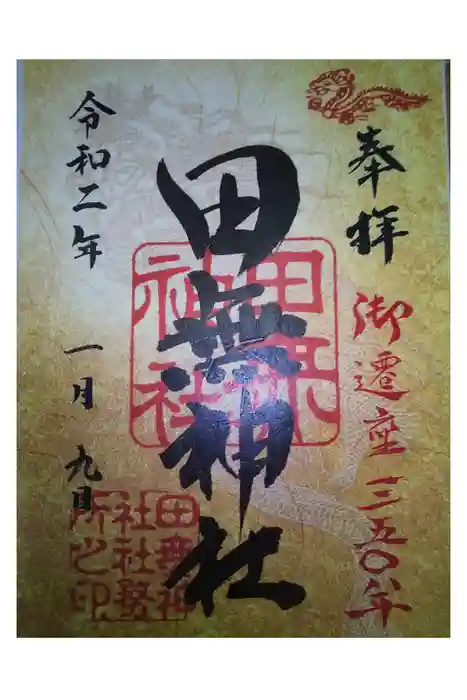 奉拝
御遷座三五〇年
田無神社
田無神社
令和二年 一月 九日
田無神社
社務所之印